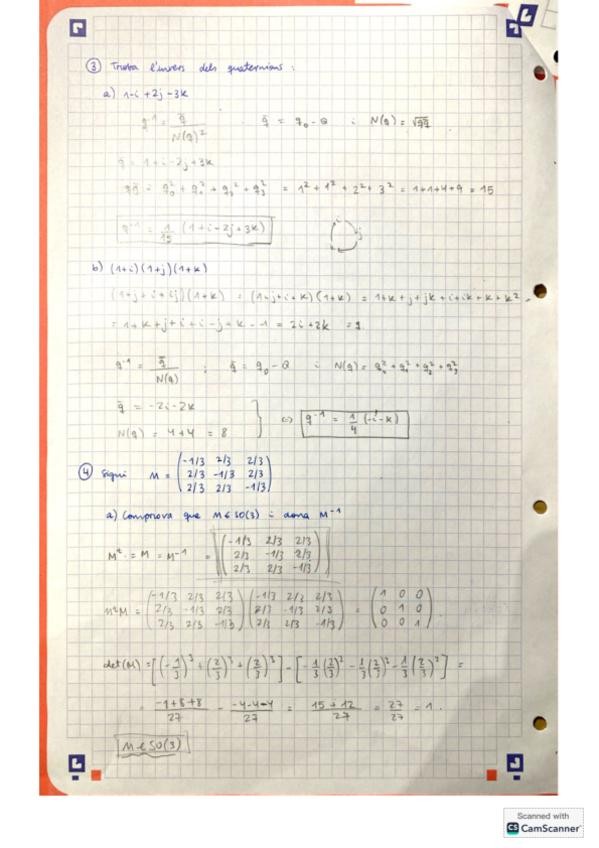 ③ Troba l'invers dels quaternions:
a) 1-i+2j-3k
q⁻¹ = q̄ / N(q)² . q̄ = q₀ - Q i N(q) = √qq̄
q̄ = 1+i-2j+3k
qq̄ = q₀² + q₁² + q₂² + q₃² = 1² + 1² + 2² + 3² = 1+1+4+9 = 15
q⁻¹ = 1/15 (1+i-2j+3k)
i j
b) (1+i)(1+j)(1+k)
(1+j+i+ij)(1+k) = (1+j+i+k)(1+k) = 1+k+j+jk+i+ik+k+k² =
= 1+k+j+i+i-j+k-1 = 2i+2k = q.
q⁻¹ = q̄ / N(q) ; q̄ = q₀ - Q i N(q) = q₀² + q₁² + q₂² + q₃²
q̄ = -2i-2k
N(q) = 4+4 = 8 } ⇔ q⁻¹ = 1/4 (-i-k)
④ Sigui M = ( -1/3 2/3 2/3
2/3 -1/3 2/3
2/3 2/3 -1/3 )
a) Comprova que M ∈ SO(3) i dona M⁻¹
Mᵗ = M = M⁻¹ = ( -1/3 2/3 2/3
2/3 -1/3 2/3
2/3 2/3 -1/3 )
MᵗM = ( -1/3 2/3 2/3 ) ( -1/3 2/3 2/3 ) = ( 1 0 0 )
( 2/3 -1/3 2/3 ) ( 2/3 -1/3 2/3 ) ( 0 1 0 )
( 2/3 2/3 -1/3 ) ( 2/3 2/3 -1/3 ) ( 0 0 1 )
det(M) = [(-1/3)³ + (2/3)³ + (2/3)³] - [-1/3(2/3)² - 1/3(2/3)² - 1/3(2/3)²] =
= -1+8+8 / 27 - -4-4-4 / 27 = 15+12 / 27 = 27/27 = 1.
M ∈ SO(3)
Scanned with
CS CamScanner